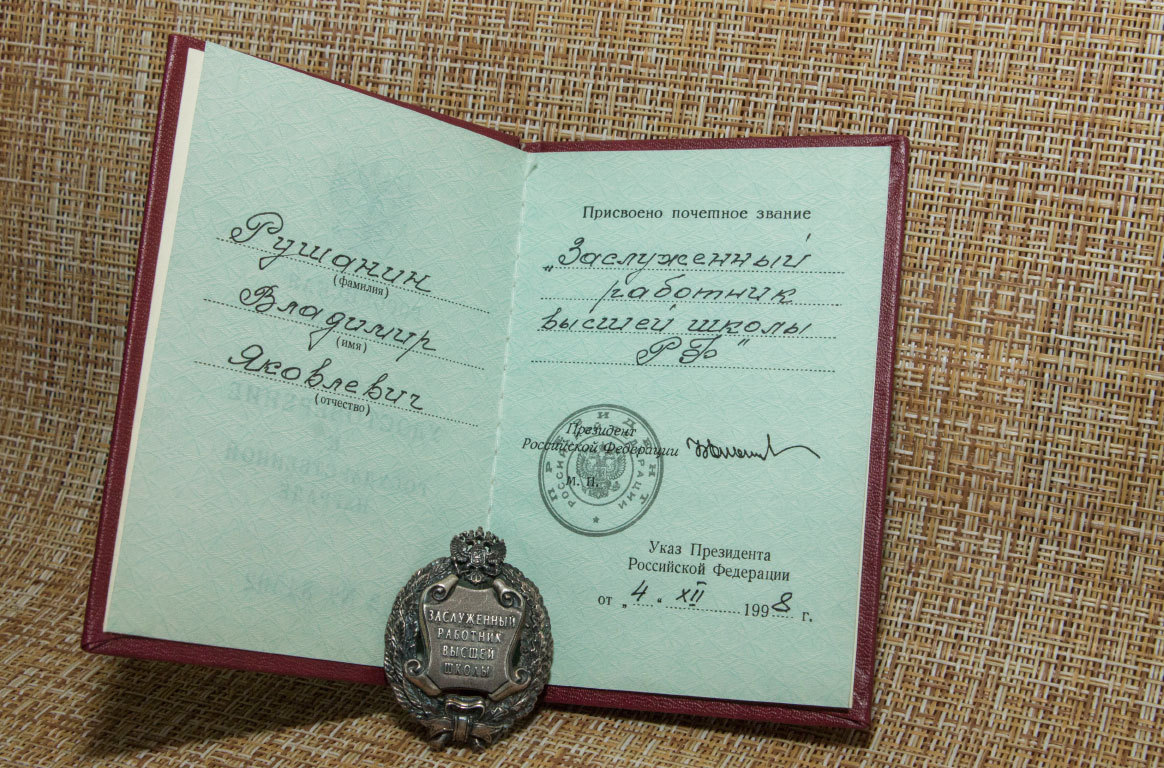 Рушанин
(фамилия)
Владимир
(имя)
Яковлевич
(отчество)
Присвоено почетное звание
„Заслуженный
работник
высшей школы
РФ"
Президент
Российской Федерации
М. П.
ПРЕЗИДЕНТ
РОССИЙСКОЙ ФЕДЕРАЦИИ
Указ Президента
Российской Федерации
от „4" XII 1998 г.
ЗАСЛУЖЕННЫЙ
РАБОТНИК
ВЫСШЕЙ
ШКОЛЫ